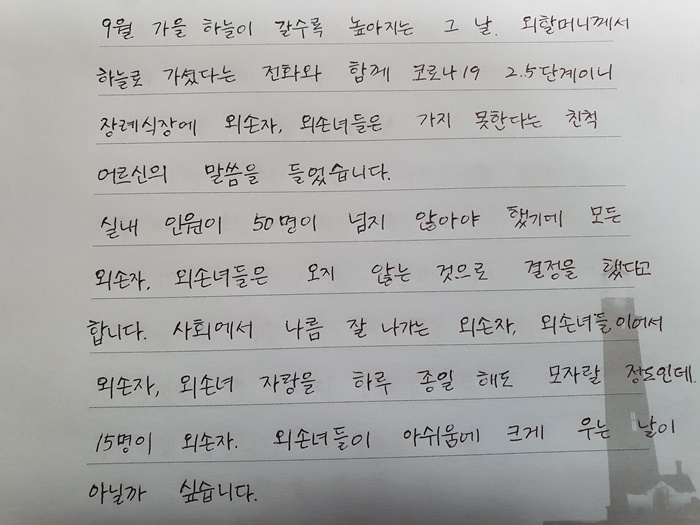 9월 가을 하늘이 갈수록 높아지는 그 날. 외할머니께서
하늘로 가셨다는 전화와 함께 코로나19 2.5단계이니
장례식장에 외손자, 외손녀들은 가지 못한다는 친척
어르신의 말씀을 들었습니다.
실내 인원이 50명이 넘지 않아야 했기에 모든
외손자, 외손녀들은 오지 않는 것으로 결정을 했다고
합니다. 사회에서 나름 잘 나가는 외손자, 외손녀들이어서
외손자, 외손녀 자랑을 하루 종일 해도 모자랄 정도인데.
15명이 외손자. 외손녀들이 아쉬움에 크게 우는 날이
아닐까 싶습니다.